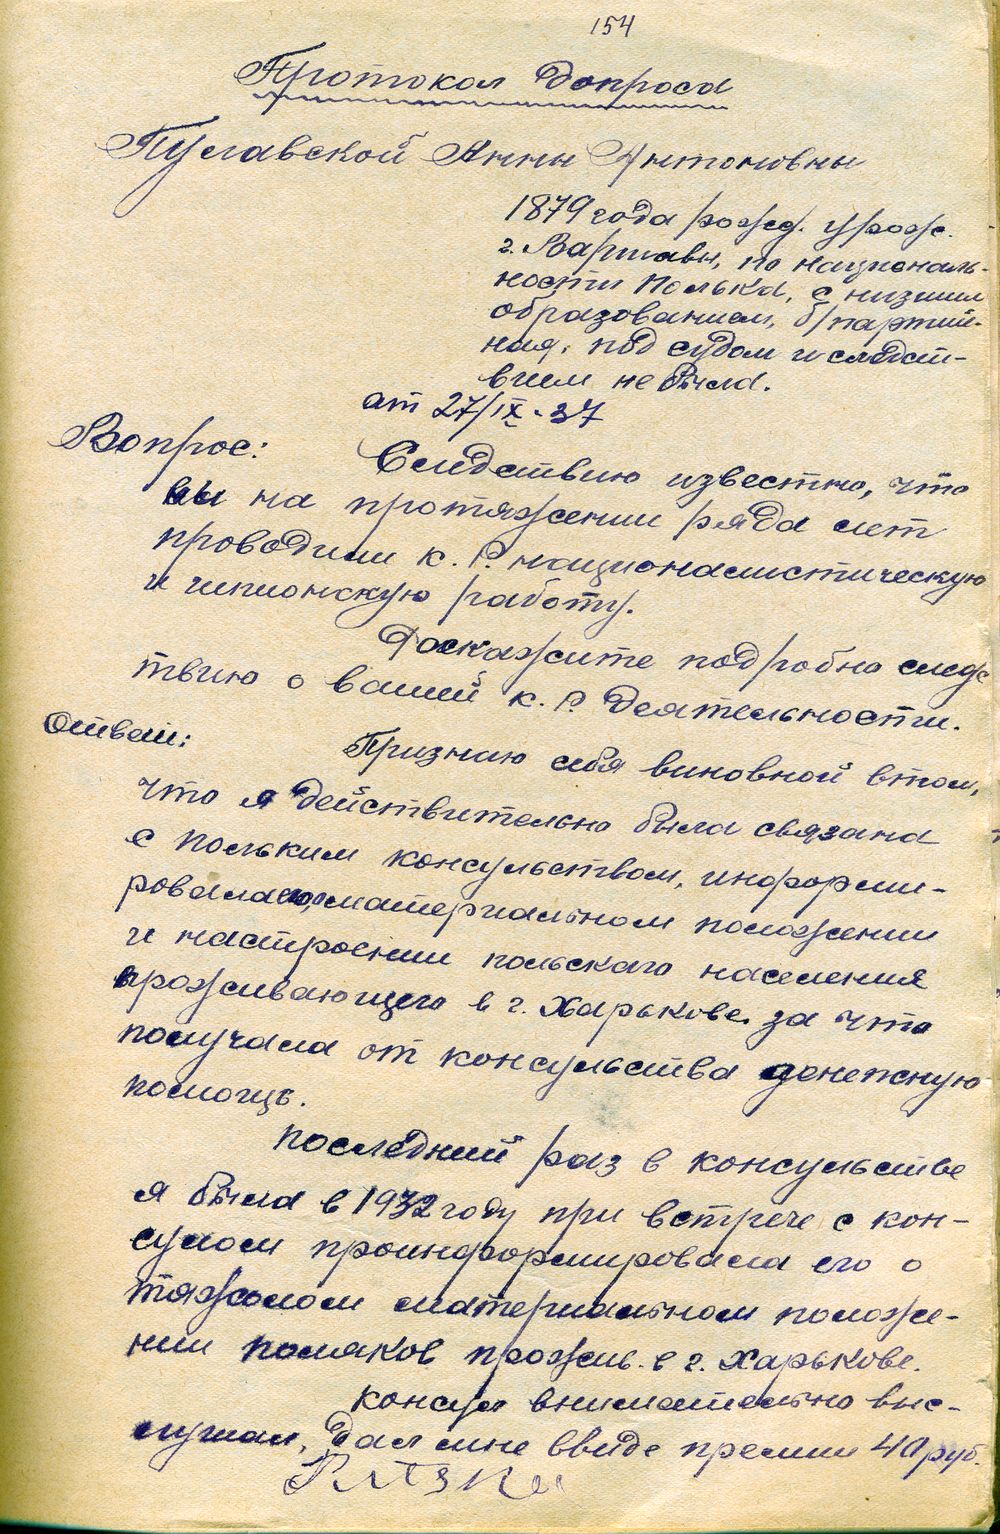 154
Протокол допроса
Пуславской Анны Антоновны
1879 года рожд. урож.
г. Варшавы, по националь-
ности полька, с низшим
образованием, б/партий-
ная, под судом и следст-
вием не была.
от 27/IX-37
Вопрос: Следствию известно, что
вы на протяжении ряда лет
проводили к. р. националистическую
и шпионскую работу.
Раскажите подробно следс
твию о вашей к. р. деятельности.
Ответ: Признаю себя виновной в том,
что я действительно была связана
с польким консульством, информи-
ровала его, материальном положении
и настроении польского населения
проживающего в г. Харькове, за что
получала от консульства денежную
помощь.
Последний раз в консульстве
я была в 1932 году при встрече с кон-
сулом проинформировала его о
тяжолом материальном положе-
нии поляков прожив. в г. Харькове.
Консул внимательно выс-
лушал, дал мне ввиде премии 40 руб.